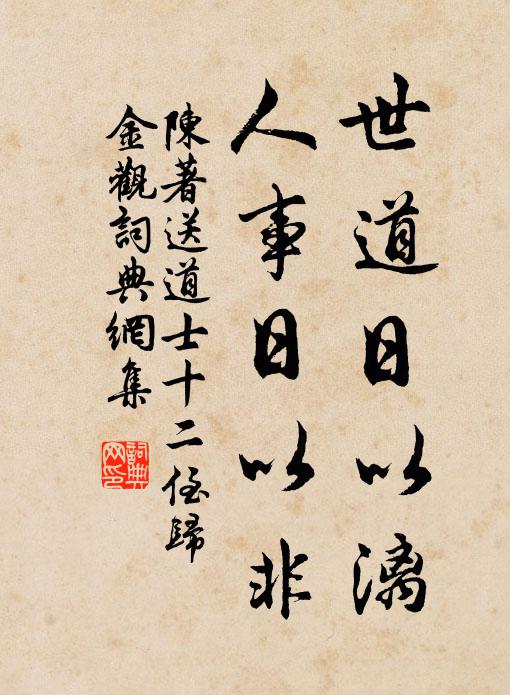 世道日以漓
人事日以非
陳著送道士十二侄歸
金觀詞典網集
詞典
网印